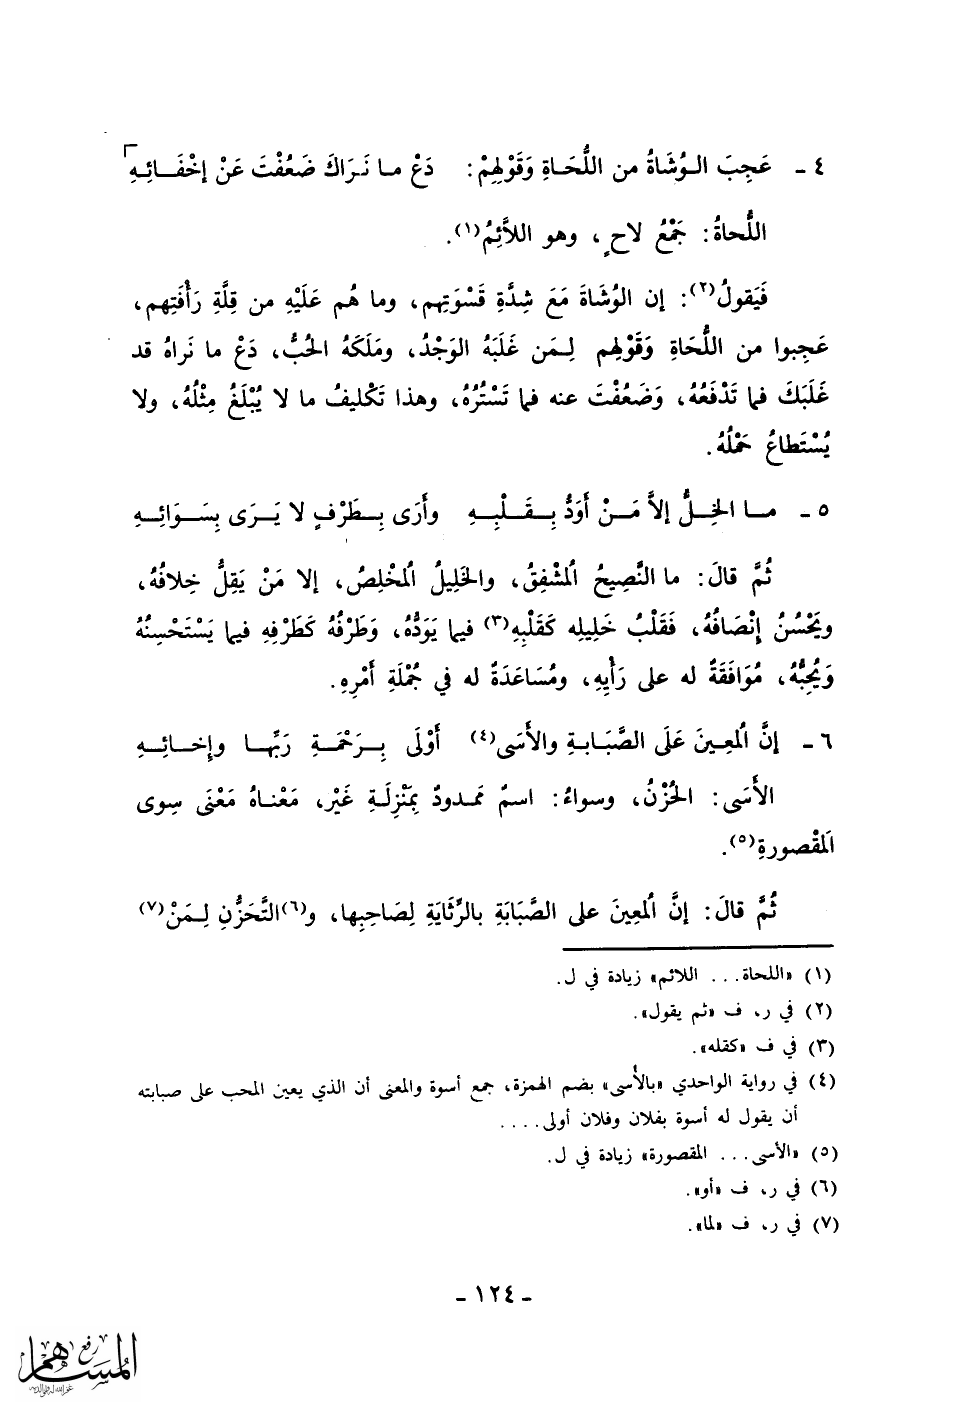 ٤ - عَجِبَ الـوُشَاةُ من اللُّحَـاةِ وَقَوْلِهِمْ: دَعْ مـا نَـرَاكَ ضَعُفْتَ عَنْ إخْفَـائِـهِ
اللُّحاةُ: جَمْعُ لاحٍ، وهو اللاَّئِمُ(١).
فَيَقولُ(٢): إن الوُشَاةَ مَعَ شِدَّةِ قَسْوَتِهم، وما هُم عَلَيْهِ من قِلَّةِ رَأْفَتِهم،
عَجِبوا من اللُّحَاةِ وَقَوْلِهم لِـمَن غَلَبَهُ الوَجْدُ، ومَلَكَهُ الحُبُّ، دَعْ ما نَراهُ قد
غَلَبَكَ فما تَدْفَعُهُ، وَضَعُفْتَ عنه فما تَسْتُرُهُ، وهذا تَكْليفُ ما لا يُبْلَغُ مِثْلُهُ، ولا
يُسْتَطاعُ حَمْلُهُ.
٥ - مـا الخِـلُّ إلاَّ مَـنْ أَوَدُّ بِـقَـلْبِـهِ وأَرَى بِـطَرْفٍ لا يَـرَى بِسَـوَائِـهِ
ثُمَّ قالَ: ما النَّصِيحُ المُشْفِقُ، والخَليلُ المُخْلِصُ، إلا مَنْ يَقِلُّ خِلافُهُ،
ويَحْسُنُ إنْصَافُهُ، فَقَلْبُ خَلِيلِه كَقَلْبِهِ(٣) فيما يَوَدُّهُ، وَطَرْفُهُ كَطَرْفِهِ فيما يَسْتَحْسِنُهُ
وَيُحِبُّهُ، مُوَافَقَةً له على رَأْيِهِ، ومُسَاعَدَةً له في جُمْلَةِ أَمْرِهِ.
٦ - إنَّ المُعِـينَ عَلَى الصَّبَـابـةِ والأَسَى(٤) أَوْلَى بِـرَحْمَـةِ رَبِّهـا وإخـائِـهِ
الأَسَى: الحُزْنُ، وسواءُ: اسمٌ ممدودٌ بِمَنْزِلَـةِ غَيْر، مَعْناهُ مَعْنَى سِوى
المَقْصورةِ(٥).
ثُمَّ قالَ: إنَّ المُعينَ على الصَّبَابَةِ بالرِّثَايَةِ لِصَاحِبِها، و(٦)التَّحَزُّنِ لِـمَنْ(٧)
(١) «اللحاة... اللائم» زيادة في ل.
(٢) في ر، ف «ثم يقول».
(٣) في ف «كقله».
(٤) في رواية الواحدي «بالأُسى» بضم الهمزة، جمع أسوة والمعنى أن الذي يعين المحب على صبابته
أن يقول له أسوة بفلان وفلان أولى....
(٥) «الأسى... المقصورة» زيادة في ل.
(٦) في ر، ف «أو».
(٧) في ر، ف «لما».
- ١٢٤ -